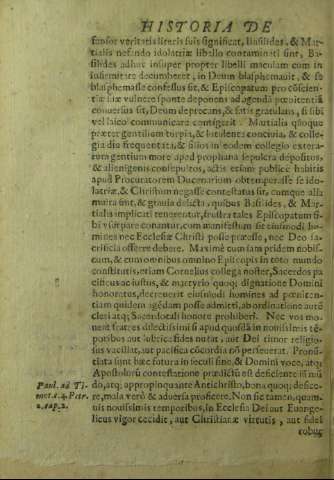 HISTORIA DE
fensor veritatis literis suis significat, Basilides, & Mar-
tialis nefando idolatriæ libello contaminati sint, Ba-
silides adhuc insuper propter libelli maculam cum in
infirmitate decumberet, in Deum blasphemauit, & se
blasphemasse confessus sit, & Episcopatum pro cõscien-
tiæ suæ vulnere sponte deponens ad agendã pœnitentiã
conuersus sit, Deum deprecans, & satis gratulans, si sibi
vel laico communicare contigerit. Martialis quoque
præter gentilium turpia, & lutulenta conuiuia, & colle-
gia diu frequentata, & filios in eodem collegio extera-
rum gentium more apud prophana sepulcra depositos,
& alienigenis consepultos, actis etiam publicè habitis
apud Procuratorem Ducenarium obtemperasse se ido-
latriæ, & Christum negasse contestatus sit, cumque alia
multa sint, & grauia delicta, quibus Basilides, & Mar-
tialis implicati tenerentur, frustra tales Episcopatum si-
bi vsurpare conantur, cum manifestum sit eiusmodi ho-
mines nec Ecclesiæ Christi posse præesse, nec Deo sa-
crificia offerre debere. Maximè cum iam pridem nobis-
cum, & cum omnibus omnino Episcopis in toto mundo
constitutis, etiam Cornelius collega noster, Sacerdos pa
cificus ac iustus, & martyrio quoq; dignatione Domini
honoratus, decreuerit eiusmodi homines ad pœniten-
tiam quidem agẽdam posse admitti, ab ordinatione autẽ
cleri atq; Sacerdotali honore prohiberi. Nec vos mo-
ueant fratres dilectissimi si apud quosdã in nouissimis tẽ-
poribus aut lubrica fides nutat, aut Dei timor religio-
sus vacillat, aut pacifica cõcordia nõ perseuerat. Pronũ-
tiata sunt hæc futura in seculi fine, & Domini voce, atq;
Apostolorũ contestatione prædictũ est deficiente iã mũ
Paul. ad Ti- do, atq; appropinquante Antichristo, bona quoq; defice-
mot. 1. 4. Petr. re, mala verò & aduersa proficere. Non sic tamen, quam-
2. cap. 2. uis nouissimis temporibus, in Ecclesia Dei aut Euange-
licus vigor cecidit, aut Christianæ virtutis, aut fidei
robur